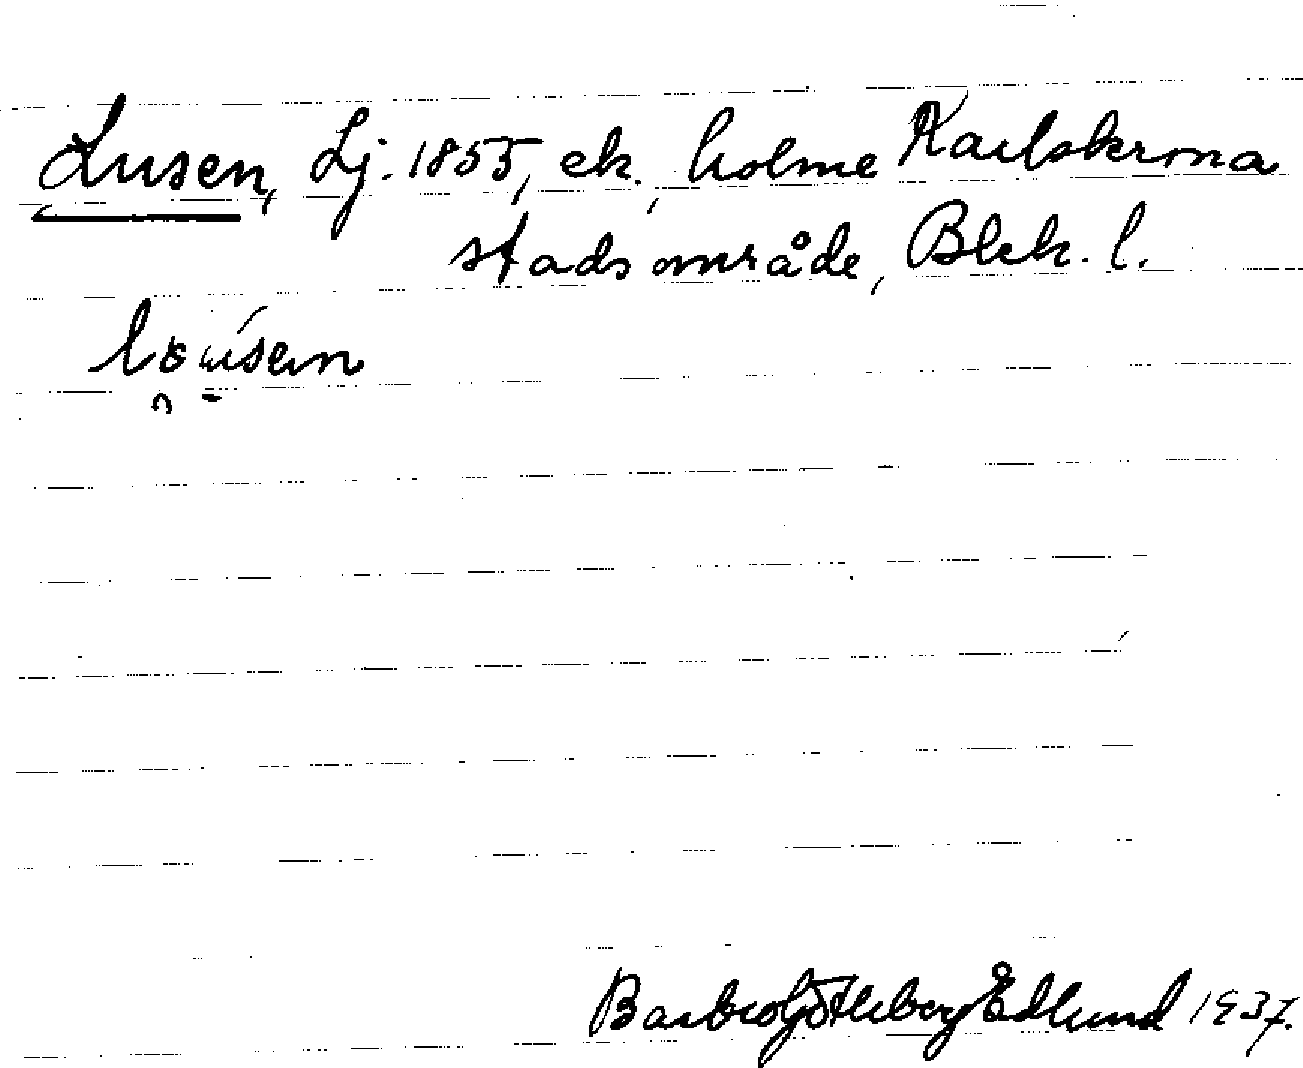 Lusen, Lj. 1855, ek., holme Karlskrona
stadsområde, Blek. l.
Barbro Götlberg Edlund 1937.